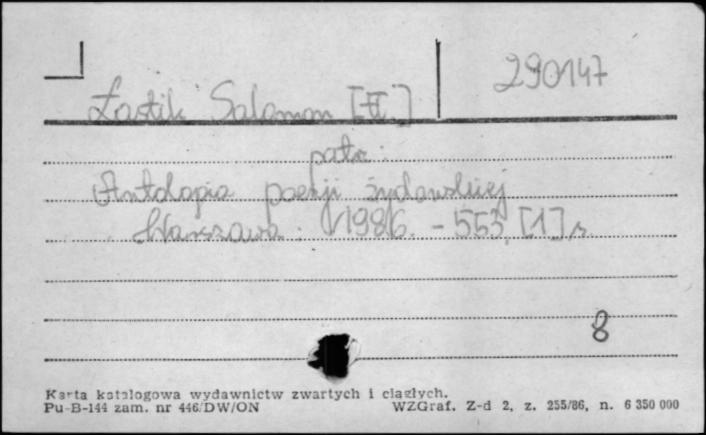 290147
Łastik Salomon [tł.]
patrz:
Antologia poezji żydowskiej
Warszawa. 1986. - 553, [1] s.
8
Karta katalogowa wydawnictw zwartych i ciągłych.
Pu-B-144 zam. nr 446/DW/ON WZGraf. Z-d 2, z. 255/86, n. 6 350 000